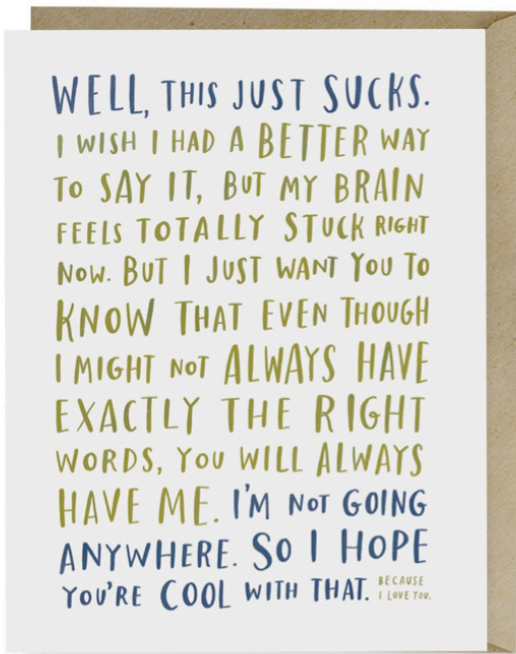 WELL, THIS JUST SUCKS.
I WISH I HAD A BETTER WAY
TO SAY IT, BUT MY BRAIN
FEELS TOTALLY STUCK RIGHT
NOW. BUT I JUST WANT YOU TO
KNOW THAT EVEN THOUGH
I MIGHT NOT ALWAYS HAVE
EXACTLY THE RIGHT
WORDS, YOU WILL ALWAYS
HAVE ME. I'M NOT GOING
ANYWHERE. SO I HOPE
YOU'RE COOL WITH THAT. BECAUSE
I LOVE YOU.